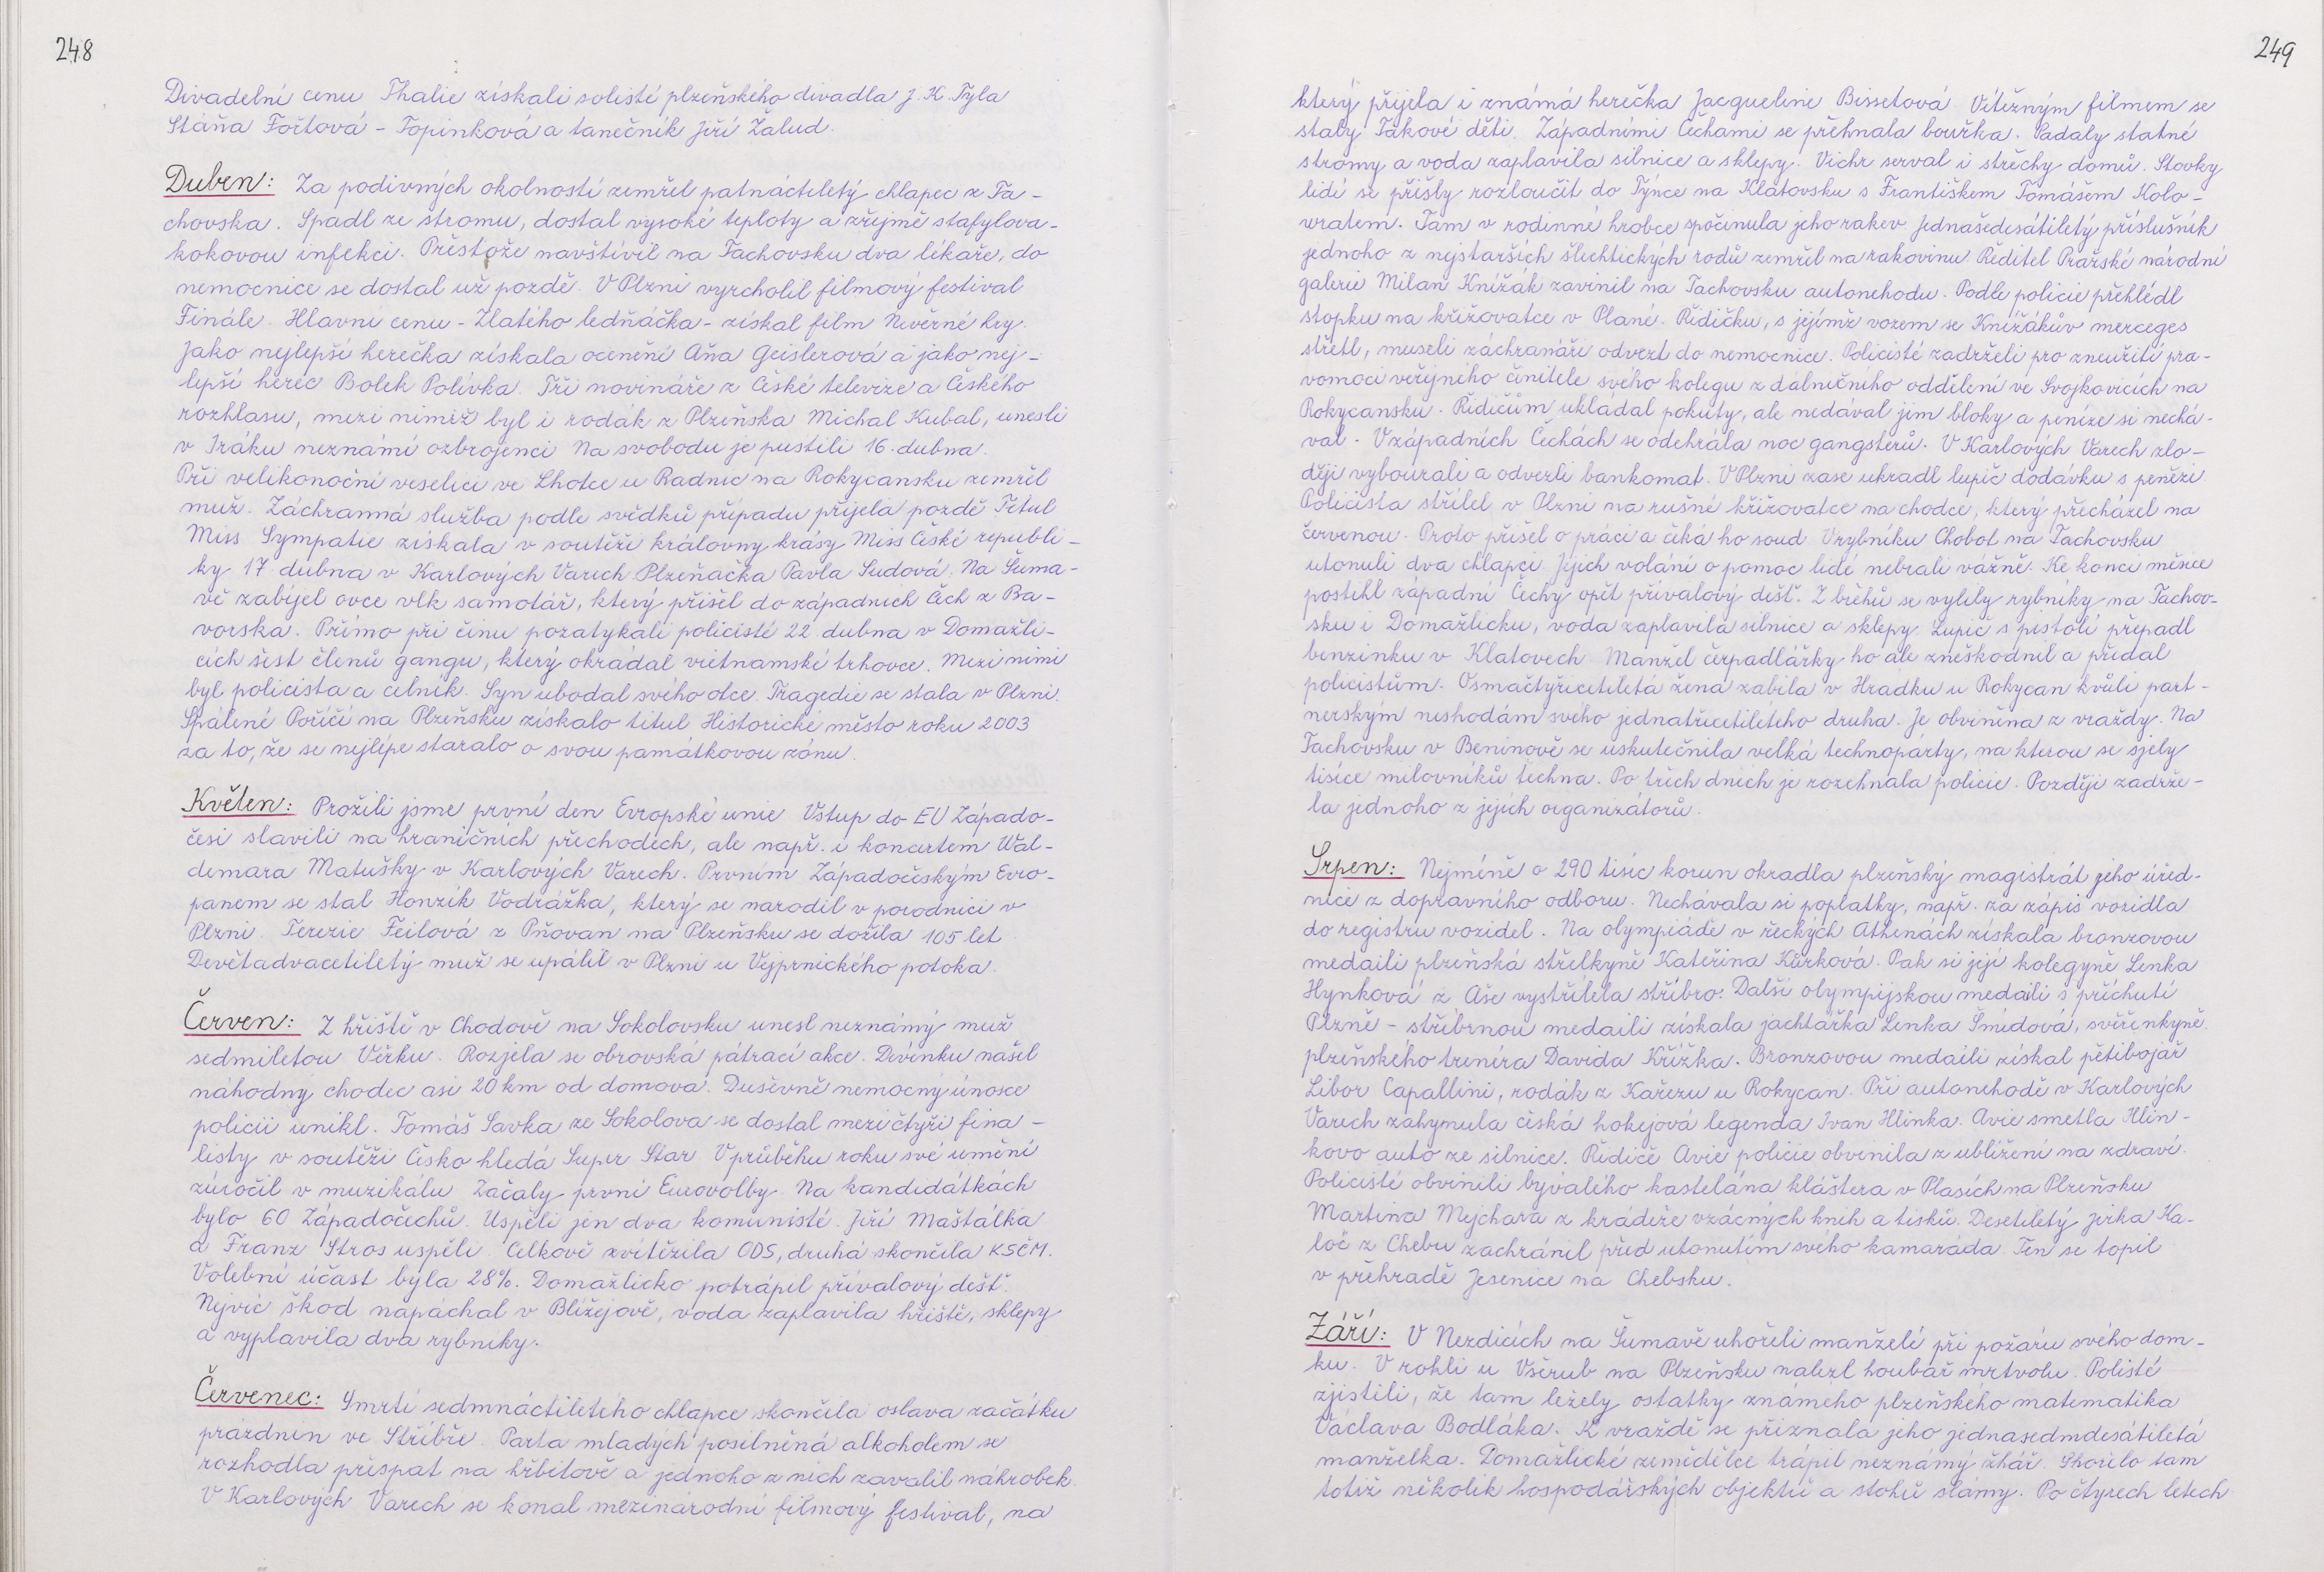 248
Divadelní cenu Thalie získali solisté plzeňského divadla J. K. Tyla
Stáňa Fořtová - Topinková a tanečník Jiří Žalud.
Duben: Za podivných okolností zemřel patnáctiletý chlapec z Ta-
chovska. Spadl ze stromu, dostal vysoké teploty a zřejmě stafylova-
kokovou infekci. Přestože navštívil na Tachovsku dva lékaře, do
nemocnice se dostal už pozdě. V Plzni vyvrcholil filmový festival
Finále. Hlavní cenu - Zlatého ledňáčka - získal film Nevěrné hry.
Jako nejlepší herečka získala ocenění Aňa Geislerová a jako nej-
lepší herec Bolek Polívka. Tři novináře z České televize a Českého
rozhlasu, mezi nimiž byl i rodák z Plzeňska Michal Kubal, unesli
v Iráku neznámí ozbrojenci. Na svobodu je pustili 16. dubna.
Při velikonoční veselici ve Lhotce u Radnic na Rokycansku zemřel
muž. Záchranná služba podle svědků případu přijela pozdě. Titul
Miss Sympatie získala v soutěži královny krásy Miss České republi-
ky 17 dubna v Karlových Varech Plzeňačka Pavla Sudová. Na Šuma-
vě zabíjel ovce vlk samotář, který přišel do západních Čech z Ba-
vorska. Přímo při činu pozatýkali policisté 22. dubna v Domažli-
cích šest členů gangu, který okrádal vietnamské trhovce. Mezi nimi
byl policista a celník. Syn ubodal svého otce. Tragedie se stala v Plzni.
Spálené Poříčí na Plzeňsku získalo titul Historické město roku 2003
za to, že se nejlépe staralo o svou památkovou zónu.
Květen: Prožili jsme první den Evropské unie. Vstup do EU Západo-
češi slavili na hraničních přechodech, ale např. i koncertem Wal-
demara Matušky v Karlových Varech. Prvním Západočeským Evro-
panem se stal Honzík Vodrážka, který se narodil v porodnici v
Plzni. Terezie Feilová z Pňovan na Plzeňsku se dožila 105 let.
Devětadvacetiletý muž se upálil v Plzni u Vejprnického potoka.
Červen: Z hřiště v Chodově na Sokolovsku unesl neznámý muž
sedmiletou Věrku. Rozjela se obrovská pátrací akce. Děvenku našel
náhodný chodec asi 20 km od domova. Duševně nemocný únosce
policii unikl. Tomáš Savka ze Sokolova se dostal mezi čtyři fina-
listy v soutěži Česko hledá Super Star. V průběhu roku své umění
zúročil v muzikálu. Začaly první Eurovolby. Na kandidátkách
bylo 60 Západočechů. Uspěli jen dva komunisté. Jiří Maštálka
a Franz Stros uspěli. Celkově zvítězila ODS, druhá skončila KSČM.
Volební účast byla 28%. Domažlicko potrápil přívalový déšť.
Nejvíc škod napáchal v Blížejově, voda zaplavila hřiště, sklepy
a vyplavila dva rybníky.
Červenec: Smrtí sedmnáctiletého chlapce skončila oslava začátku
prázdnin ve Stříbře. Parta mladých posilněná alkoholem se
rozhodla přespat na hřbitově a jednoho z nich zavalil náhrobek.
V Karlových Varech se konal mezinárodní filmový festival, na
249
který přijela i známá herečka Jacqueline Bissetová. Vítězným filmem se
staly Takové děti. Západními Čechami se přehnala bouřka. Padaly statné
stromy a voda zaplavila silnice a sklepy. Vichr serval i střechy domů. Stovky
lidí se přišly rozloučit do Týnce na Klatovsku s Františkem Tomášem Kolo-
wratem. Tam v rodinné hrobce spočinula jeho rakev. Jednašedesátiletý příslušník
jednoho z nejstarších šlechtických rodů zemřel na rakovinu. Ředitel Pražské národní
galerie Milan Knížák zavinil na Tachovsku autonehodu. Podle policie přehlédl
stopku na křižovatce v Plané. Řidičku, s jejímž vozem se Knížákův merceges
střetl, museli záchranáři odvézt do nemocnice. Policisté zadrželi pro zneužití pra-
vomoci veřejného činitele svého kolegu z dálničního oddělení ve Svojkovicích na
Rokycansku. Řidičům ukládal pokuty, ale nedával jim bloky a peníze si nechá-
val. V západních Čechách se odehrála noc gangsterů. V Karlových Varech zlo-
ději vybourali a odvezli bankomat. V Plzni zase ukradl lupič dodávku s penězi.
Policista střílel v Plzni na rušné křižovatce na chodce, který přecházel na
červenou. Proto přišel o práci a čeká ho soud. V rybníku Chobot na Tachovsku
utonuli dva chlapci. Jejich volání o pomoc lidé nebrali vážně. Ke konci měsíce
postihl západní Čechy opět přívalový déšť. Z břehů se vylily rybníky na Tachov-
sku i Domažlicku, voda zaplavila silnice a sklepy. Lupič s pistolí přepadl
benzinku v Klatovech. Manžel čerpadlářky ho ale zneškodnil a předal
policistům. Osmačtyřicetiletá žena zabila v Hrádku u Rokycan kvůli part-
nerským neshodám svého jednatřicetiletého druha. Je obviněna z vraždy. Na
Tachovsku v Beninově se uskutečnila velká technopárty, na kterou se sjely
tisíce milovníků techna. Po třech dnech je rozehnala policie. Později zadrže-
la jednoho z jejích organizátorů.
Srpen: Nejméně o 290 tisíc korun okradla plzeňský magistrát jeho úřed-
nice z dopravního odboru. Nechávala si poplatky, např. za zápis vozidla
do registru vozidel. Na olympiádě v řeckých Athenách získala bronzovou
medaili plzeňská střelkyně Kateřina Kůrková. Pak si její kolegyně Lenka
Hynková z Aše vystřílela stříbro. Další olympijskou medaili s příchutí
Plzně - stříbrnou medaili získala jachtařka Lenka Šmídová, svěřenkyně
plzeňského trenéra Davida Křížka. Bronzovou medaili získal pětibojař
Libor Capallini, rodák z Kařezu u Rokycan. Při autonehodě v Karlových
Varech zahynula česká hokejová legenda Ivan Hlinka. Avie smetla Hlin-
kovo auto ze silnice. Řidiče Avie policie obvinila z ublížení na zdraví.
Policisté obvinili bývalého kastelána kláštera v Plasích na Plzeňsku
Martina Mejchara z krádeže vzácných knih a tisků. Desetiletý Jirka Ka-
loč z Chebu zachránil před utonutím svého kamaráda. Ten se topil
v přehradě Jesenice na Chebsku.
Září: V Nezdicích na Šumavě uhořeli manželé při požáru svého dom-
ku. V rokli u Všerub na Plzeňsku nalezl houbař mrtvolu. Polisté
zjistili, že tam ležely ostatky známého plzeňského matematika
Václava Bodláka. K vraždě se přiznala jeho jednasedmdesátiletá
manželka. Domažlické zemědělce trápil neznámý žhář. Shořelo tam
totiž několik hospodářských objektů a stohů slámy. Po čtyrech letech